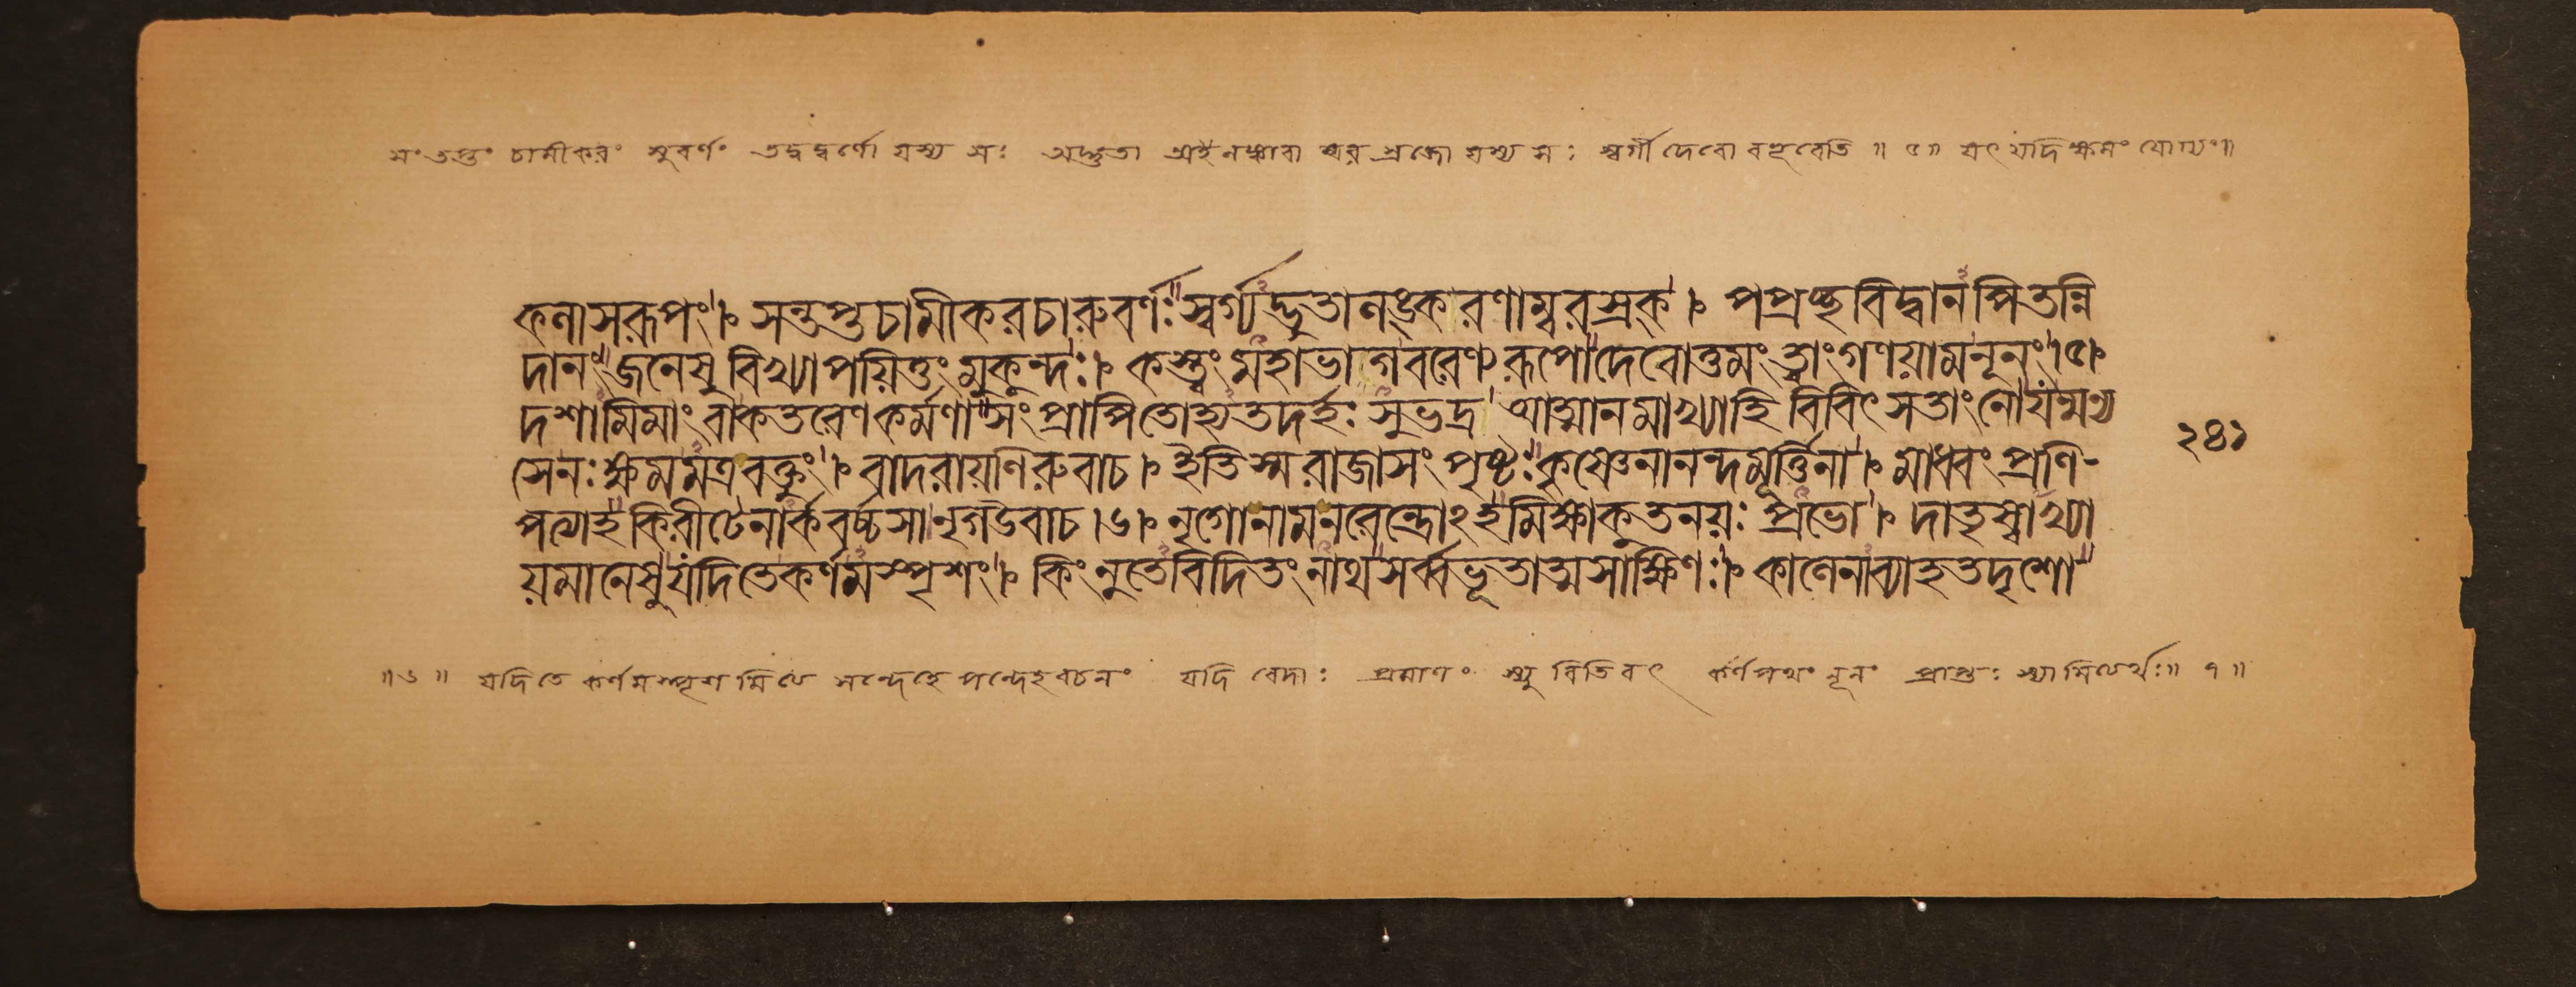 সংতপ্তং চামীকরং সুবর্ণং তদ্বদ্বর্ণো যস্য সঃ অদ্ভুতা অলঙ্কারা অম্বর স্রজো যস্য সঃ স্বর্গী দেবো বভূবেতি ॥ ৫॥ যৎ যদি ক্ষমং যোগ্যং॥
কলাসরূপং। সন্তপ্তচামীকরচারুবর্ণঃ স্বর্গ্যদ্ভুতালঙ্করণাম্বরস্রক্। পপ্রচ্ছবিদ্বানপিতন্নি
দানং জনেসু বিখ্যাপয়িতুং মুকুন্দঃ। কস্ত্বং মহাভাগবরেণ্য রূপো দেবোত্তমং ত্বাংগণয়ামনূনং।৫।
দশামিমাং বাকতরেণকর্মণা সংপ্রাপিতোহ্যতদর্হঃ সুভদ্র আত্মানমাখ্যাহি বিবিৎসতাংনোযন্মন্য
সেনঃ ক্ষমমত্রবক্তুং। বাদরায়ণিরুবাচ। ইতিস্মরাজাসংপৃষ্টঃ কৃষ্ণেনানন্দমূর্ত্তিনা। মাধবংপ্রণি-
পত্যাহ কিরীটেনার্কবর্চ্চসা নৃগউবাচ।৬। নৃগোনামনরেন্দ্রোঽহমিক্ষ্বাকুতনয়ঃ প্রভো। দাতৃষ্বাখ্যা
য়মানেষুযদিতেকর্ণমস্পৃশং। কিংনুতেবিদিতংনাথসর্ব্বভূতাত্মসাক্ষিণঃ। কালেনাব্যাহতদৃশো
২৪১
॥৬॥ যদি তে কর্ণমস্পৃশমিতি সন্দেহে সন্দেহবচনং যদি বেদাঃ প্রমাণং স্যুরিতিবৎ কর্ণপথং নূনং প্রাপ্তঃ স্যামিত্যর্থঃ॥ ৭ ॥